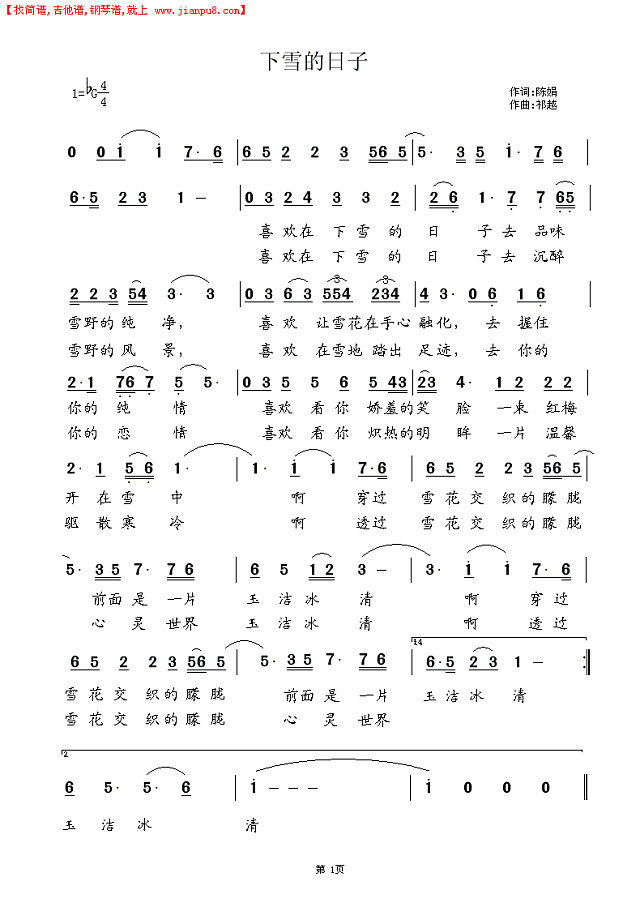 【找简谱,吉他谱,钢琴谱,就上 www.jianpu8.com】
下雪的日子
1=♭G 4/4
作词:陈娟
作曲:祁越
0 0 i i 7· 6 | 6 5 2 2 3 56 5 | 5· 3 5 i· 7 6 |
6· 5 2 3 1 – | 0 3 2 4 3 3 2 | 2 6 1· 7 7 65 |
喜 欢在 下雪 的 日 子去 品味
喜 欢在 下雪 的 日 子去 沉醉
2 2 3 54 3· 3 | 0 3 6 3 554 234 | 4 3· 0 6 1 6 |
雪野的纯 净, 喜 欢 让雪花在手心 融化, 去 握住
雪野的风 景, 喜 欢 在雪地 踏出 足迹, 去 你的
2· 1 76 7 5 5· | 0 3 5 5 6 5 43 | 23 4· 1 2 2 2 |
你的 纯 情 喜欢 看你 娇羞的 笑 脸 一束 红梅
你的 恋 情 喜欢 看你 炽热的 明 眸 一片 温馨
2· 1 5 6 1· | 1· i i 7· 6 | 6 5 2 2 3 56 5 |
开 在雪 中 啊 穿过 雪花交 织的朦胧
驱 散寒 冷 啊 透过 雪花交 织的朦胧
5· 3 5 7· 7 6 | 6 5 1 2 3· | 3· i i 7· 6 |
前面 是 一片 玉 洁冰 清 啊 穿过
心 灵 世界 玉 洁冰 清 啊 透过
14
6 5 2 2 3 56 5 | 5· 3 5 7· 7 6 | 6· 5 2 3 1 – :‖
雪花交 织的朦胧 前面 是 一片 玉洁冰 清
雪花交 织的朦胧 心 灵 世界
2
6 5· 5· 6 | i – – – | i 0 0 0 ‖
玉 洁 冰 清
第 1页